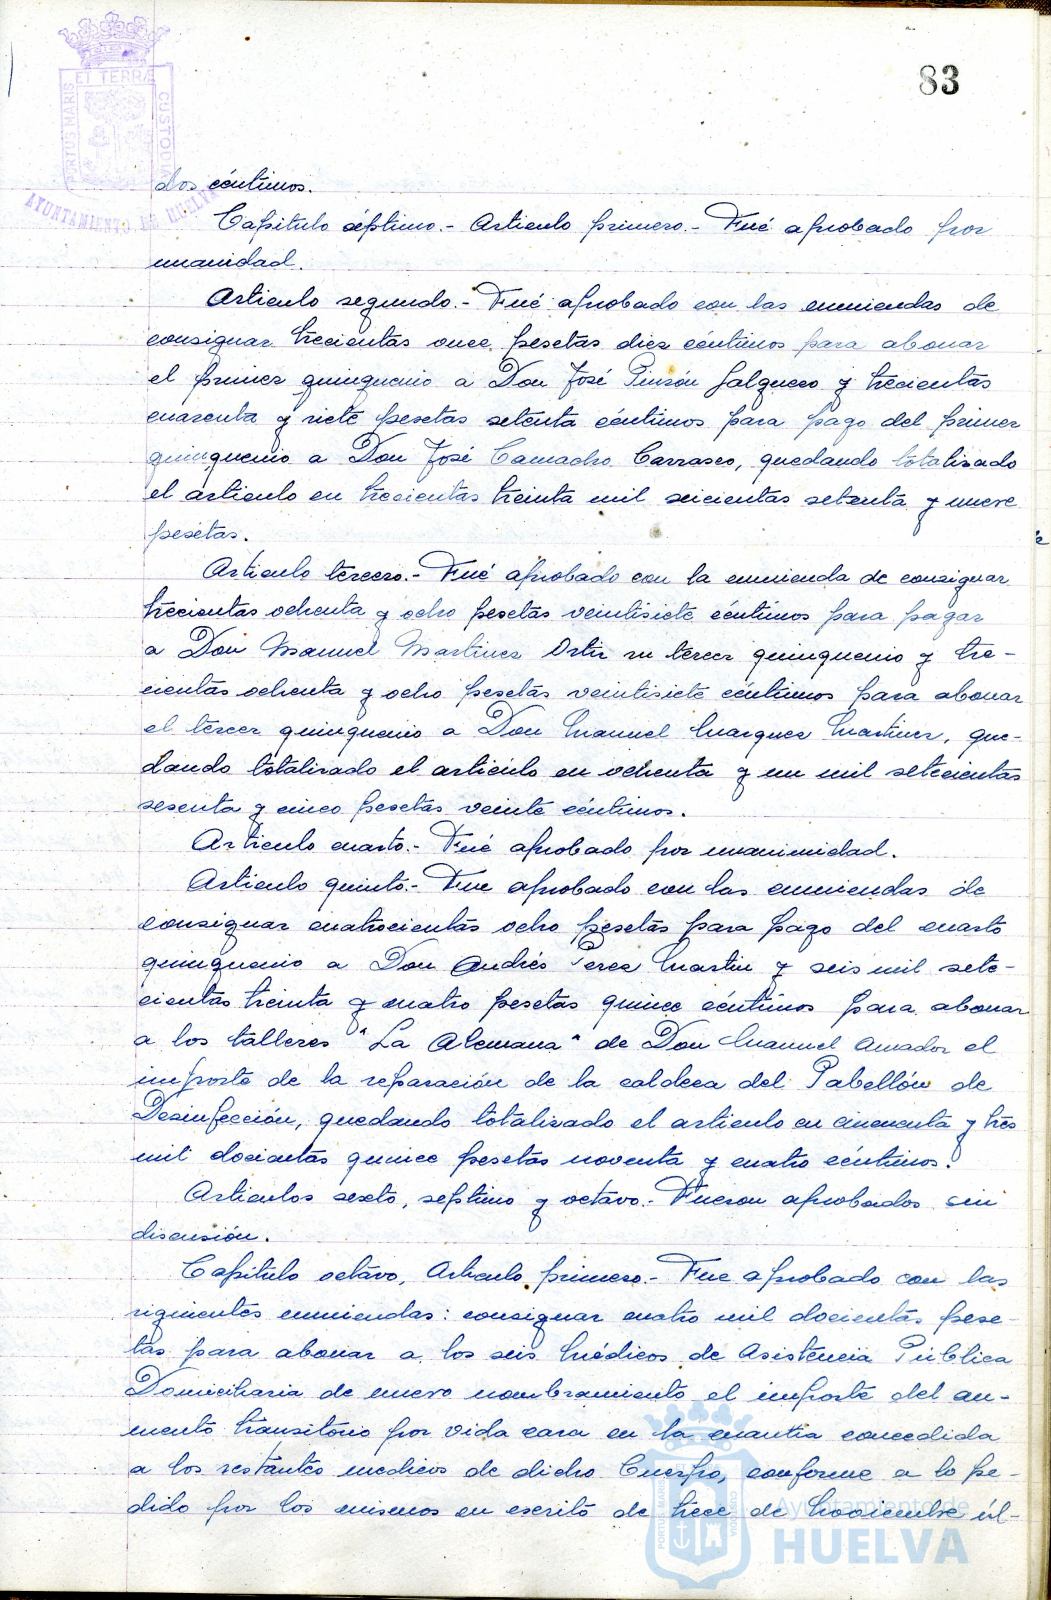 83
PORTUS MARIS ET TERRÆ CUSTODIA
AYUNTAMIENTO DE HUELVA
dos céntimos.
Capítulo séptimo.- Artículo primero.- Fué aprobado por
unanidad.
Artículo segundo.- Fué aprobado con las enmiendas de
consignar trecientas once pesetas diez céntimos para abonar
el primer quinquenio a Don José Pinzón Salguero y trecientas
cuarenta y siete pesetas setenta céntimos para pago del primer
quinquenio a Don José Camacho Carrasco, quedando totalizado
el artículo en trecientas treinta mil seicientas setenta y nueve
pesetas.
Artículo tercero.- Fué aprobado con la enmienda de consignar
trecientas ochenta y ocho pesetas veintisiete céntimos para pagar
a Don Manuel Martinez Ortiz su tercer quinquenio y tre-
cientas ochenta y ocho pesetas veintisiete céntimos para abonar
el tercer quinquenio a Don Manuel Marquez Martinez, que-
dando totalizado el artículo en ochenta y un mil setecientas
sesenta y cinco pesetas veinte céntimos.
Artículo cuarto.- Fué aprobado por unanimidad.
Artículo quinto.- Fue aprobado con las enmiendas de
consignar cuatrocientas ocho pesetas para pago del cuarto
quinquenio a Don Andrés Perez Martin y seis mil sete-
cientas treinta y cuatro pesetas quince céntimos para abonar
a los talleres "La Alemana" de Don Manuel Amador el
importe de la reparación de la caldera del Pabellón de
Desinfección, quedando totalizado el artículo en cincuenta y tres
mil docientas quince pesetas noventa y cuatro céntimos.
Artículos sexto, septimo y octavo.- Fueron aprobados sin
discusión.
Capítulo octavo, Artículo primero.- Fue aprobado con las
siguientes enmiendas: consignar cuatro mil docientas pese-
tas para abonar a los seis Médicos de Asistencia Pública
Domiciliaria de nuevo nombramiento el importe del au-
mento transitorio por vida cara en la cuantía concedida
a los restantes medicos de dicho Cuerpo, conforme a lo pe-
dido por los mismos en escrito de trece de Noviembre úl-
Ayuntamiento de
HUELVA